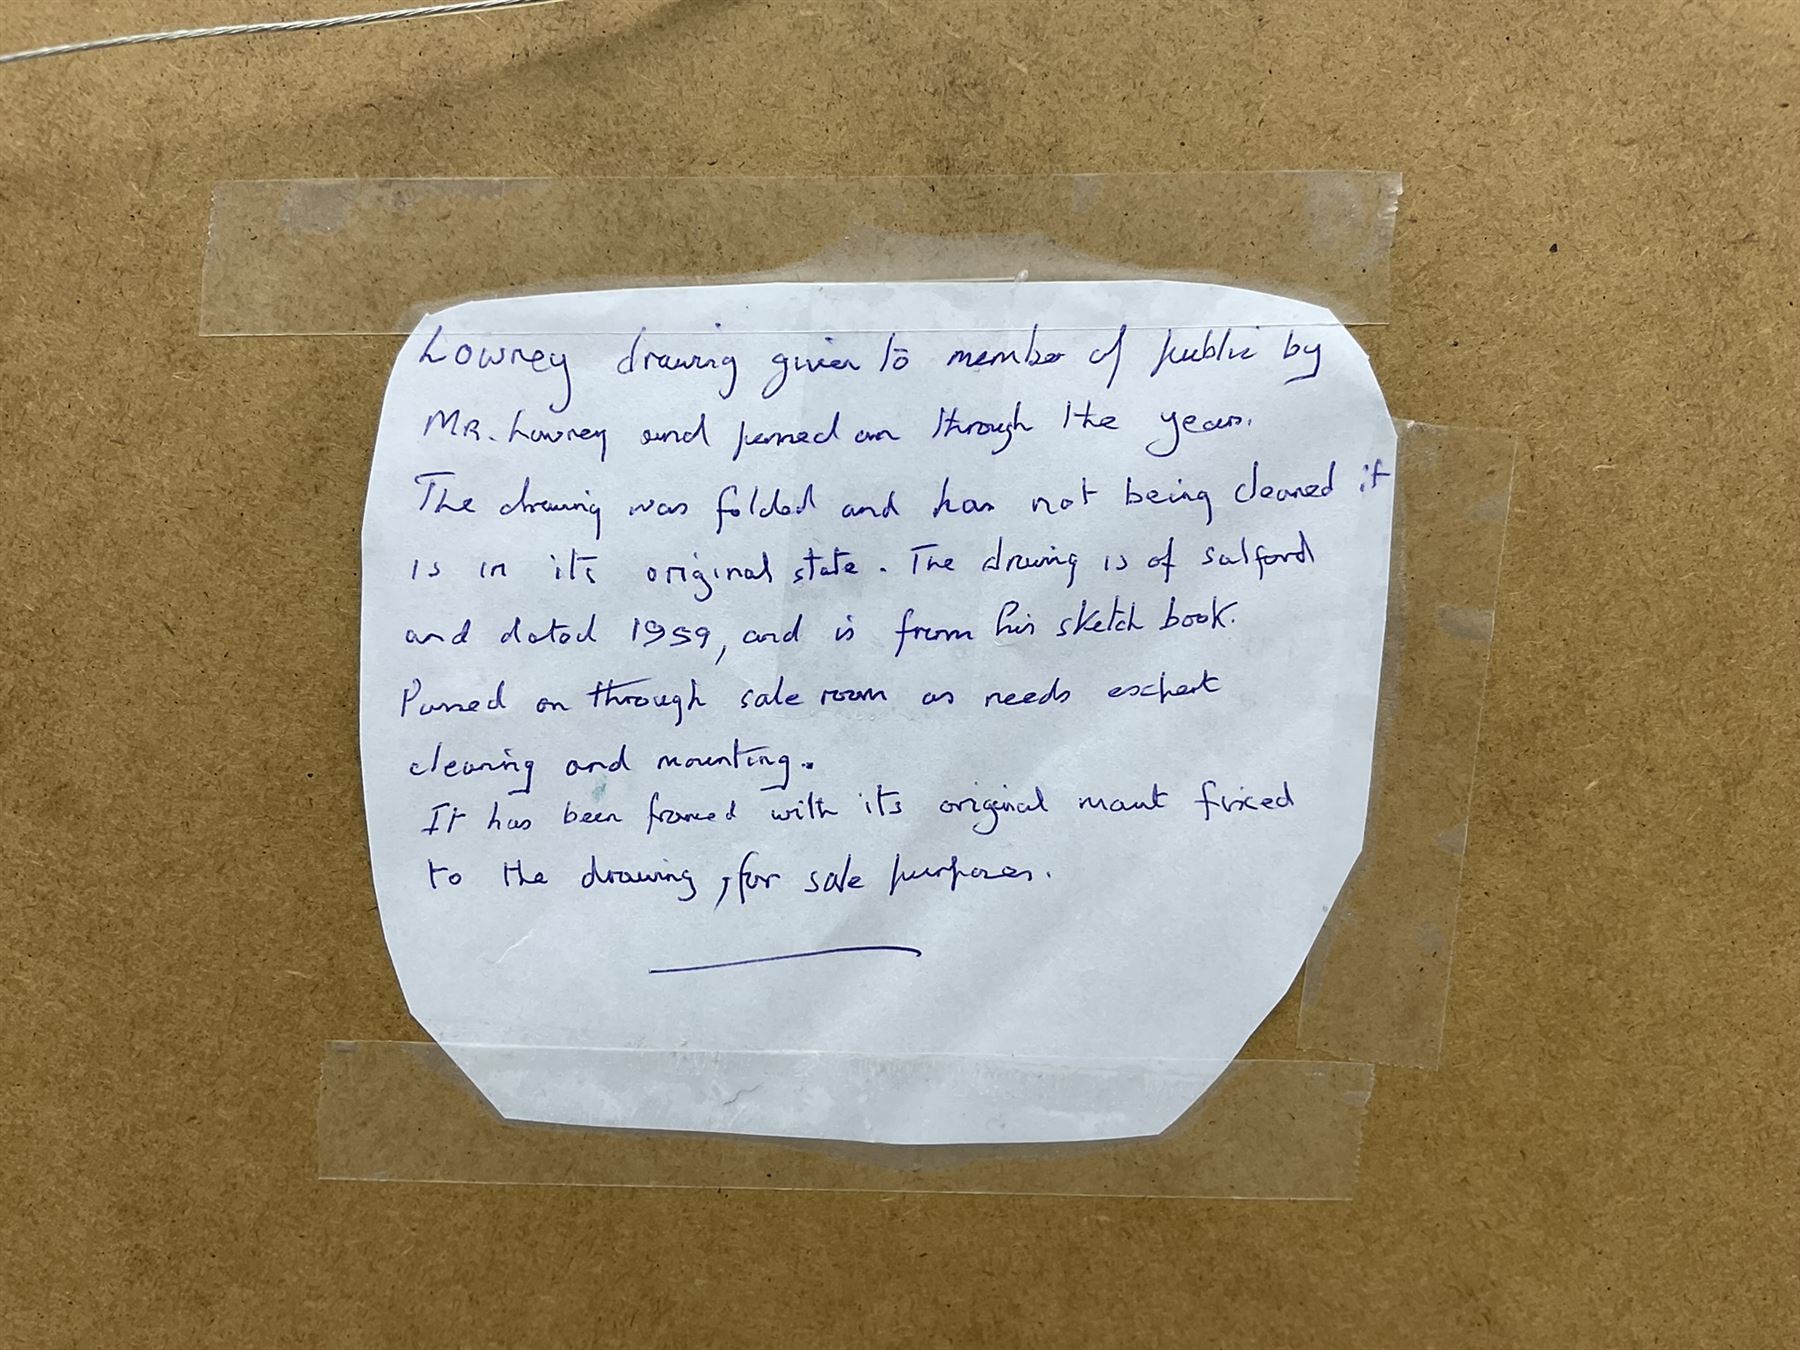 Lowrey drawing given to member of public by
MR. Lowrey and passed on through the years.
The drawing was folded and has not being cleaned it
is in its original state. The drawing is of salford
and dated 1959, and is from his sketch book.
Passed on through sale room as needs expert
cleaning and mounting.
It has been framed with its original mount fixed
to the drawing, for sale purposes.